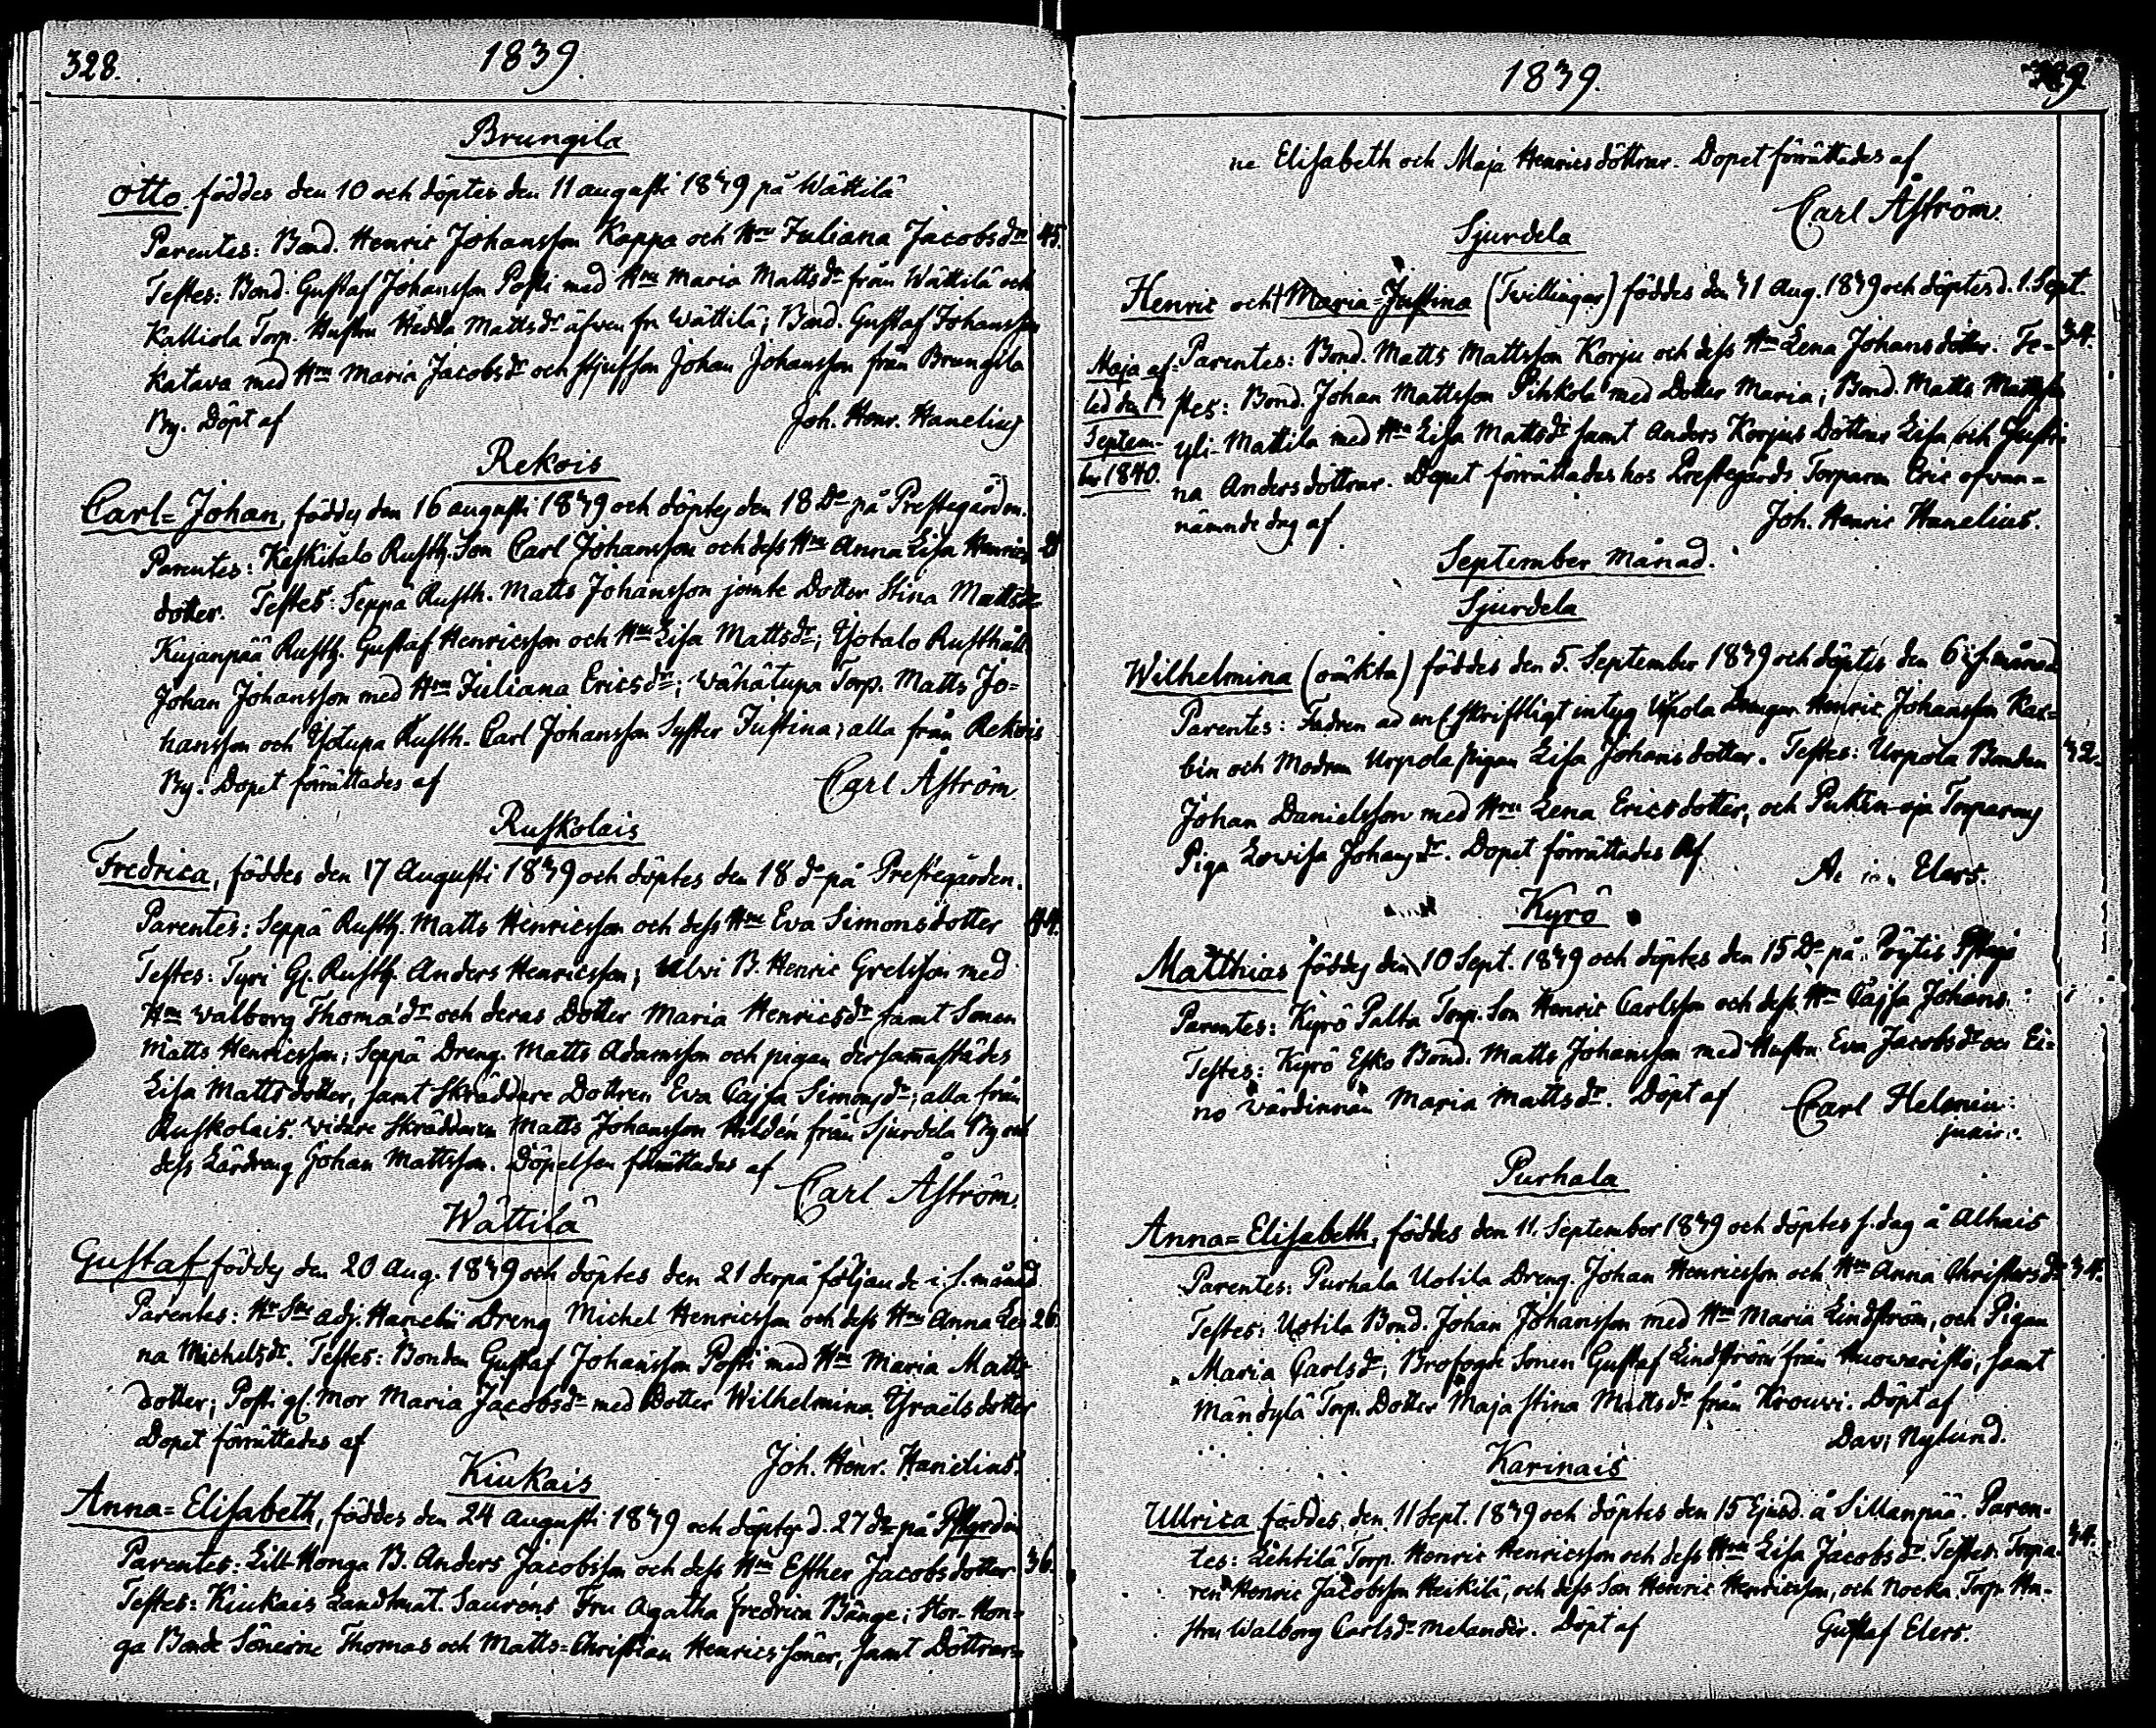 328.
1839.
Brungila
Otto föddes den 10 och döptes den 11 augusti 1839 på Wättilä
Parentes: Bond. Henric Johansson Kappa och Hru Juliana Jacobsdr 45.
Testes: Bond. Gustaf Johansson Posti med Hru Maria Mattsdr från Wättilä och
Kalliola Torp. Hustru Hedda Mattsdr äfven fr Wättilä; Bond. Gustaf Johansson
Katava med Hru Maria Jacobsdr och stjufson Johan Johansson från Brungila
By. Döpt af
Joh. Henr. Hanelius
Rekois
Carl=Johan, föddes den 16 augusti 1839 och döptes den 18 Do på Prestegården.
Parentes: Keskitalo Rusth. Son Carl Johansson och dess Hru Anna Lisa Henrics
dotter. Testes: Seppä Rusth. Matts Johansson jemte Dotter Stina Mattsdr
Kujanpää Rusth. Gustaf Henricsson och Hru Lisa Mattsdr; Isotalo Rusthåll.
Johan Johansson med Hru Juliana Ericsdr; Wähätupa Torp. Matts Jo=
hansson och Isotupa Rusth. Carl Johansson Syster Justina; alla från Rekois
By. Dopet förrättades af
Carl Åström.
Ruskolais
Fredrica, föddes den 17 Augusti 1839 och döptes den 18 do på Prestegården.
Parentes: Seppä Rusth. Matts Henricsson och dess Hru Eva Simonsdotter 44.
Testes: Tyri Gl. Rusth. Anders Henricsson; Ulvi B. Henric Grelsson med
Hru Walborg Thomædr och deras Dotter Maria Henricsdr samt Sonen
Matts Henricsson; Seppä Dreng. Matts Adamsson och pigan dersammastädes
Lisa Mattsdotter, samt Skräddare Dottren Eva Cajsa Simonsdr; alla från
Ruskolais. vidare Skräddaren Matts Johansson Hildén från Sjurdela By och
dess Lärdreng Johan Mattsson. Döpelsen förrättades af
Carl Åström.
Wättilä
Gustaf föddes den 20 Aug. 1839 och döptes den 21 derpå följande i s. månad
Parentes: Hr Sne adj. Hanelii Dreng Michel Henricsson och dess Hru Anna Le= 26.
na Michelsdr. Testes: Bonden Gustaf Johansson Posti med Hru Maria Matts
dotter; Posti gl. Mor Maria Jacobsdr med Dotter Wilhelmina Israëlsdotter
Dopet förrättades af
Joh. Henr. Hanelius.
Kiukais
Anna=Elisabeth, föddes den 24 Augusti 1839 och döptes d. 27 do på
Parentes: Lill-Honga B. Anders Jacobsson och dess Hru Esther Jacobsdotter 36.
Testes: Kiukais Landtmät. Sauréns Fru Agatha Fredrica Bånge; Stor-Hon=
ga Bonde Sönerne Thomas och Matts=Christian Henrics Söner, samt Döttrar=
1839.
ne Elisabeth och Maja Henricsdöttrar. Dopet förrättades af
Carl Åström.
Sjurdela
Henric och Maria=Justina (Twillingar) föddes den 31 Aug. 1839 och döptes d. 1. Sept.
Parentes: Bond. Matts Mattsson Korju och dess Hru Lena Johansdotter. Te= 34.
Maja af=
led den 13
Septem=
ber 1840.
stes: Bond. Johan Mattsson Pihkola med Dotter Maria; Bond. Matts Mattsson
yli-Mattila med Hru Lisa Mattsdr samt Anders Korjus Döttrar Lisa och Justi=
na Andersdöttrar. Dopet förrättades hos Prestegårds Torparen Eric ofvan=
nämnde dag af
Joh. Henric Hanelius.
September Månad.
Sjurdela
Wilhelmina (oäkta) föddes den 5. September 1839 och döptes den 6 i s. månad
Parentes: Fadren enl skriftligt intyg Drengen Henric Johansson Kar=
bin och Modren Urpola pigan Lisa Johansdotter. Testes: Urpola Bonden 32.
Johan Danielsson med Hru Lena Ericsdotter, och Torparens
Piga Lovisa Johansdr. Dopet förrättades af
Elers.
Kyrö
Matthias föddes den 10 Sept. 1839 och döptes den 15 Do på Pöytis
Parentes: Kyrö Palta Torp. Son Henric Carlsson och dess Hru Cajsa Johans.
Testes: Kyrö Esko Bond. Matts Johansson med Hustru Eva Jacobsdr och Ei=
no värdinnan Maria Mattsdr. Döpt af
Carl Helenius
junior.
Purhala
Anna=Elisabeth, föddes den 11. September 1839 och döptes s. dag å Alhais
Parentes: Purhala Uotila Dreng. Johan Henricsson och Hru Anna Christersdr 34.
Testes: Uotila Bond. Johan Johansson med Hru Maria Lindström, och Pigan
Maria Carlsdr; Brofogde Sonen Gustaf Lindström från samt
Mändylä Torp. Dotter Maja Stina Mattsdr från Krouvi. Döpt af
Dav: Nylund.
Karinais
Ullrica föddes den 11 Sept. 1839 och döptes den 15 Ejusd. å Sillanpää. Paren=
tes: Lehtilä Torp. Henric Henricsson och dess Hru Lisa Jacobsdr. Testes: Torpa= 34.
ren Henric Jacobsson Heikilä, och dess Son Henric Henricsson, och Nocka Torp. Hu=
stru Walborg Carlsdr Melander. Döpt af
Gustaf Elers.